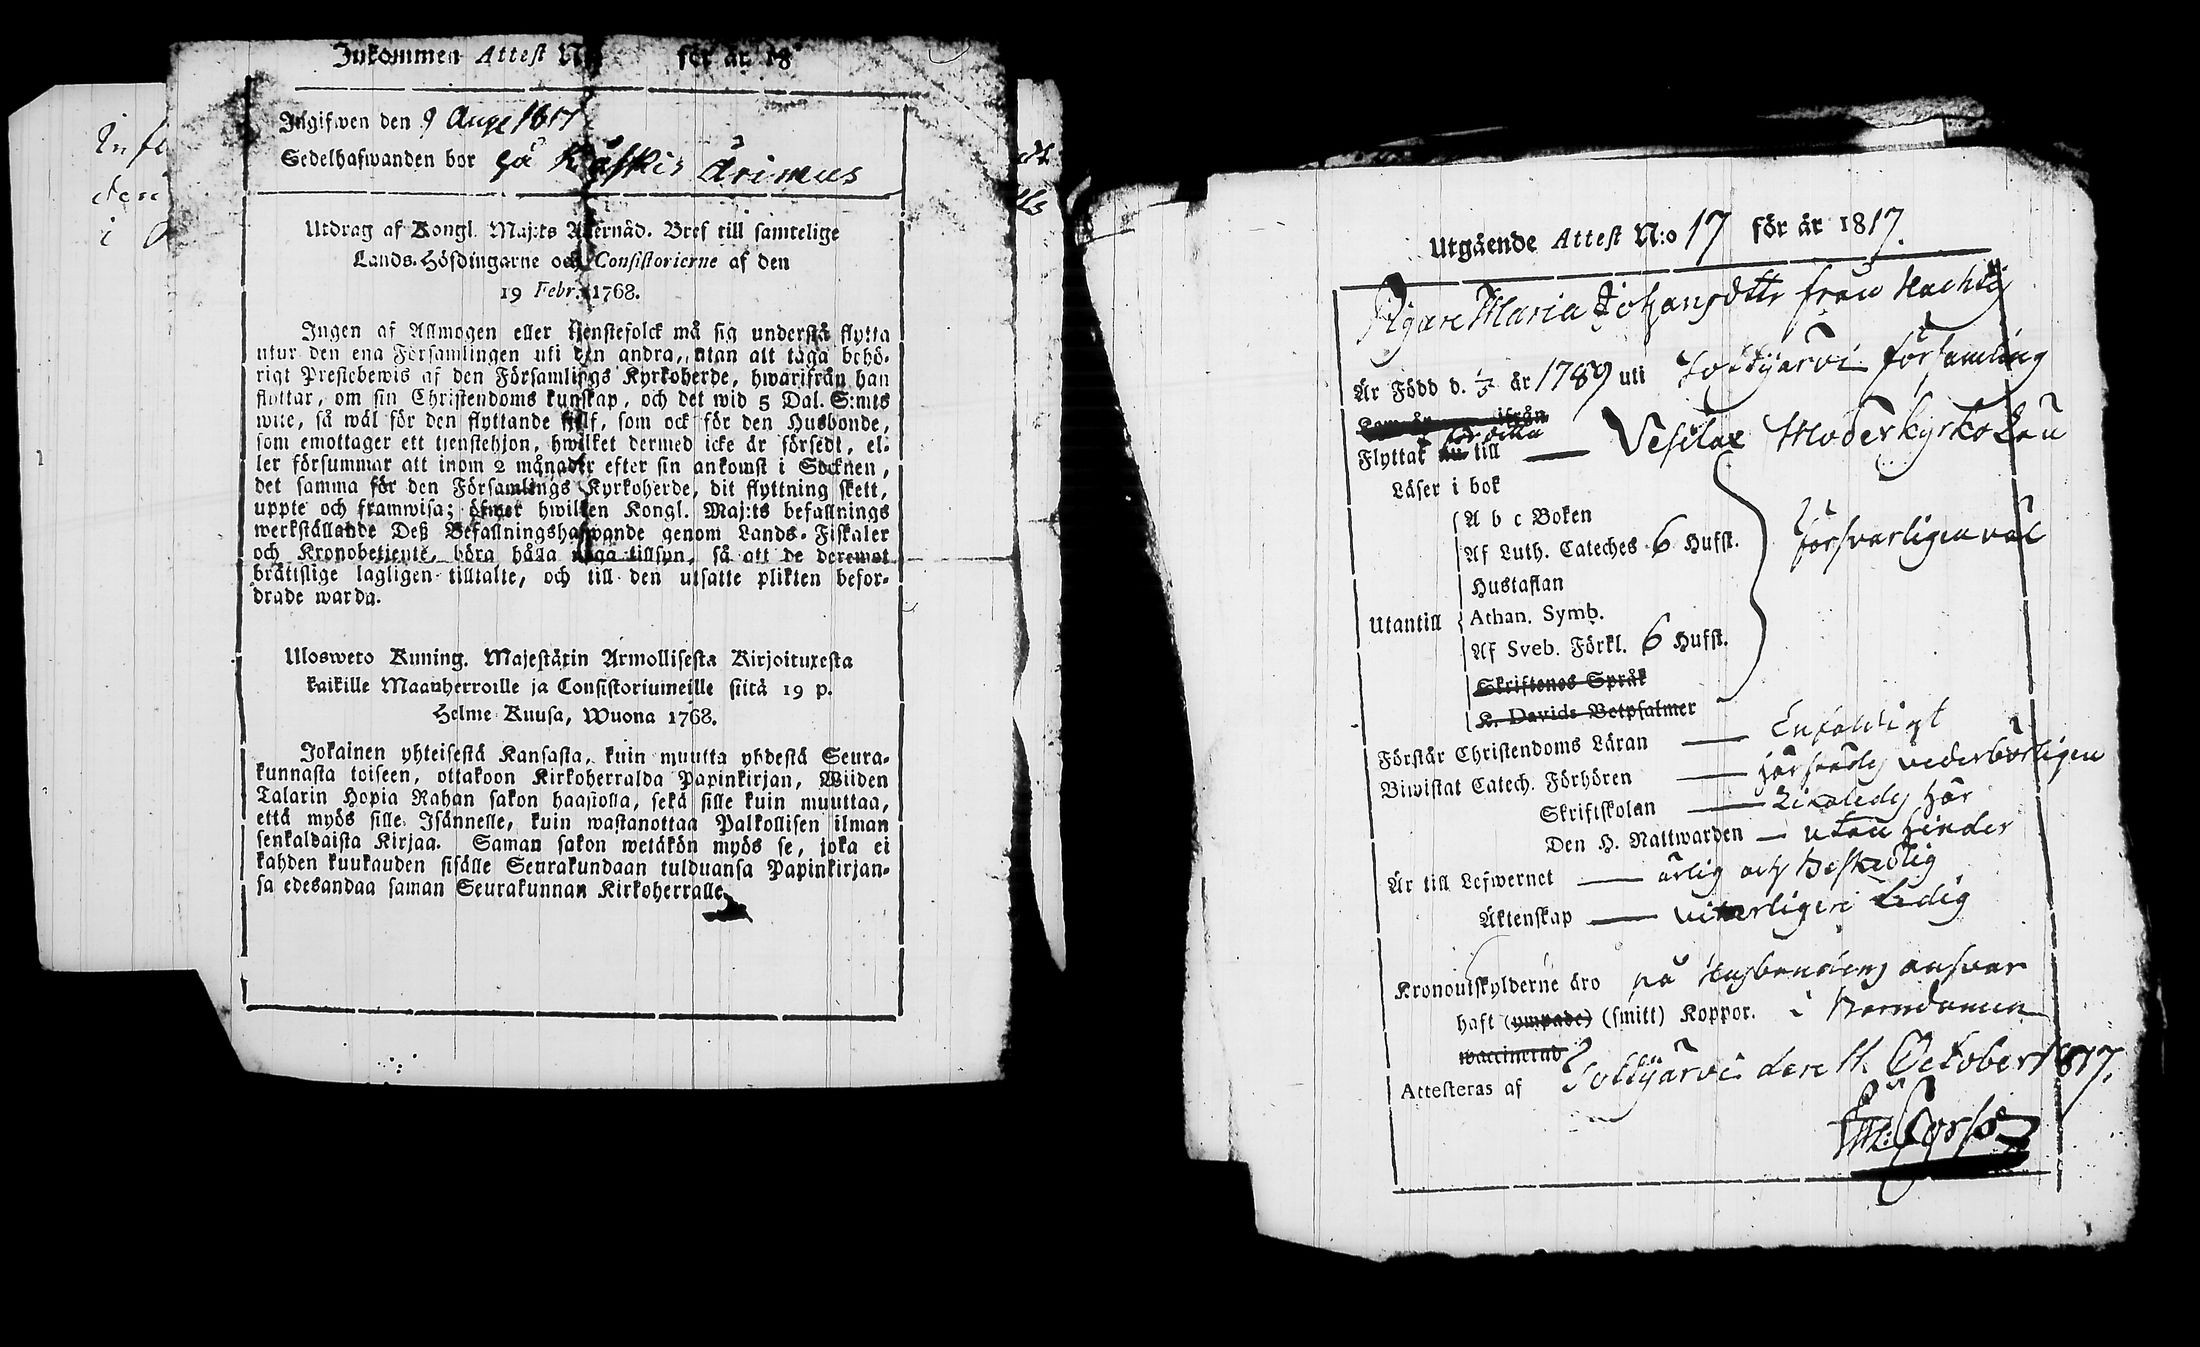 Inkommen Attest N för år 18
Ingifwen den 9 Aug 1817
Sedelhafwanden bor på Arimus
Utdrag af Kongl. Maj:ts Allernåd. Bref till samtelige
Lands-Höfdingarne och Consistorierne af den
19 Febr. 1768.
Ingen af Allmogen eller tjenstefolck må sig understå flytta
utur den ena Församlingen uti den andra, utan att taga behö-
rigt Prestebewis af den Församlings Kyrkoherde, hwarifrån han
flyttar, om sin Christendoms kunskap, och det wid 5 Dal. S:mts
wite, så wäl för den flyttande sielf, som ock för den Husbonde,
som emottager ett tjenstehjon, hwilket dermed icke är försedt, el-
ler försummar att inom 2 månader efter sin ankomst i Socknen,
det samma för den Församlings Kyrkoherde, dit flyttning skett,
uppte och framwisa; öfwer hwilken Kongl. Maj:ts befallnings
werkställande Deß Befallningshafwande genom Lands-Fiskaler
och Kronobetjente, böra hålla noga tillsyn, så att de deremot
bråttslige lagligen tilltalte, och till den utsatte plikten befor-
drade warda.
Ulosweto Kuning. Majestätin Armollisesta Kirjoituxesta
kaikille Maanherroille ja Consistoriumeille siitä 19 p.
Helme-Kuusa, Wuona 1768.
Jokainen yhteisestä Kansasta, kuin muutta yhdestä Seura-
kunnasta toiseen, ottakoon Kirkoherralda Papinkirjan, Wiiden
Talarin Hopia Rahan sakon haastolla, sekä sille kuin muuttaa,
että myös sille Isännelle, kuin wastanottaa Palkollisen ilman
senkaldaista Kirjaa. Saman sakon wetäkön myös se, joka ei
kahden kuukauden sisälle Seurakundaan tulduansa Papinkirjan-
sa edesandaa saman Seurakunnan Kirkoherralle.
Utgående Attest N:o 17 för år 1817.
Pigan Maria Johansdttr från
Är Född d. år 1789 uti församling
ifrån
Flyttat till Vesilax Moderkyrko
Läser i bok
A b c Boken
Af Luth. Cateches 6 Hufst.
försvarligen väl
Hustaflan
Utantill Athan. Symb.
Af Sveb. Förkl. 6 Hufst.
Skriftenes Språk
K. Davids Betpsalmer
Förstår Christendoms Läran Enfaldigt
Biwistat Catech. Förhören vederbörligen
Skriftskolan här
Den H. Nattwarden utan hinder
Är till Lefwernet ärlig och beskedlig
Äktenskap veterligen Ledig
Kronoutskylderne äro på Husbondens ansvar
haft (ympade) (smitt) Koppor. i Barndomen
waccinerad
Attesteras af den 11 October 1817.